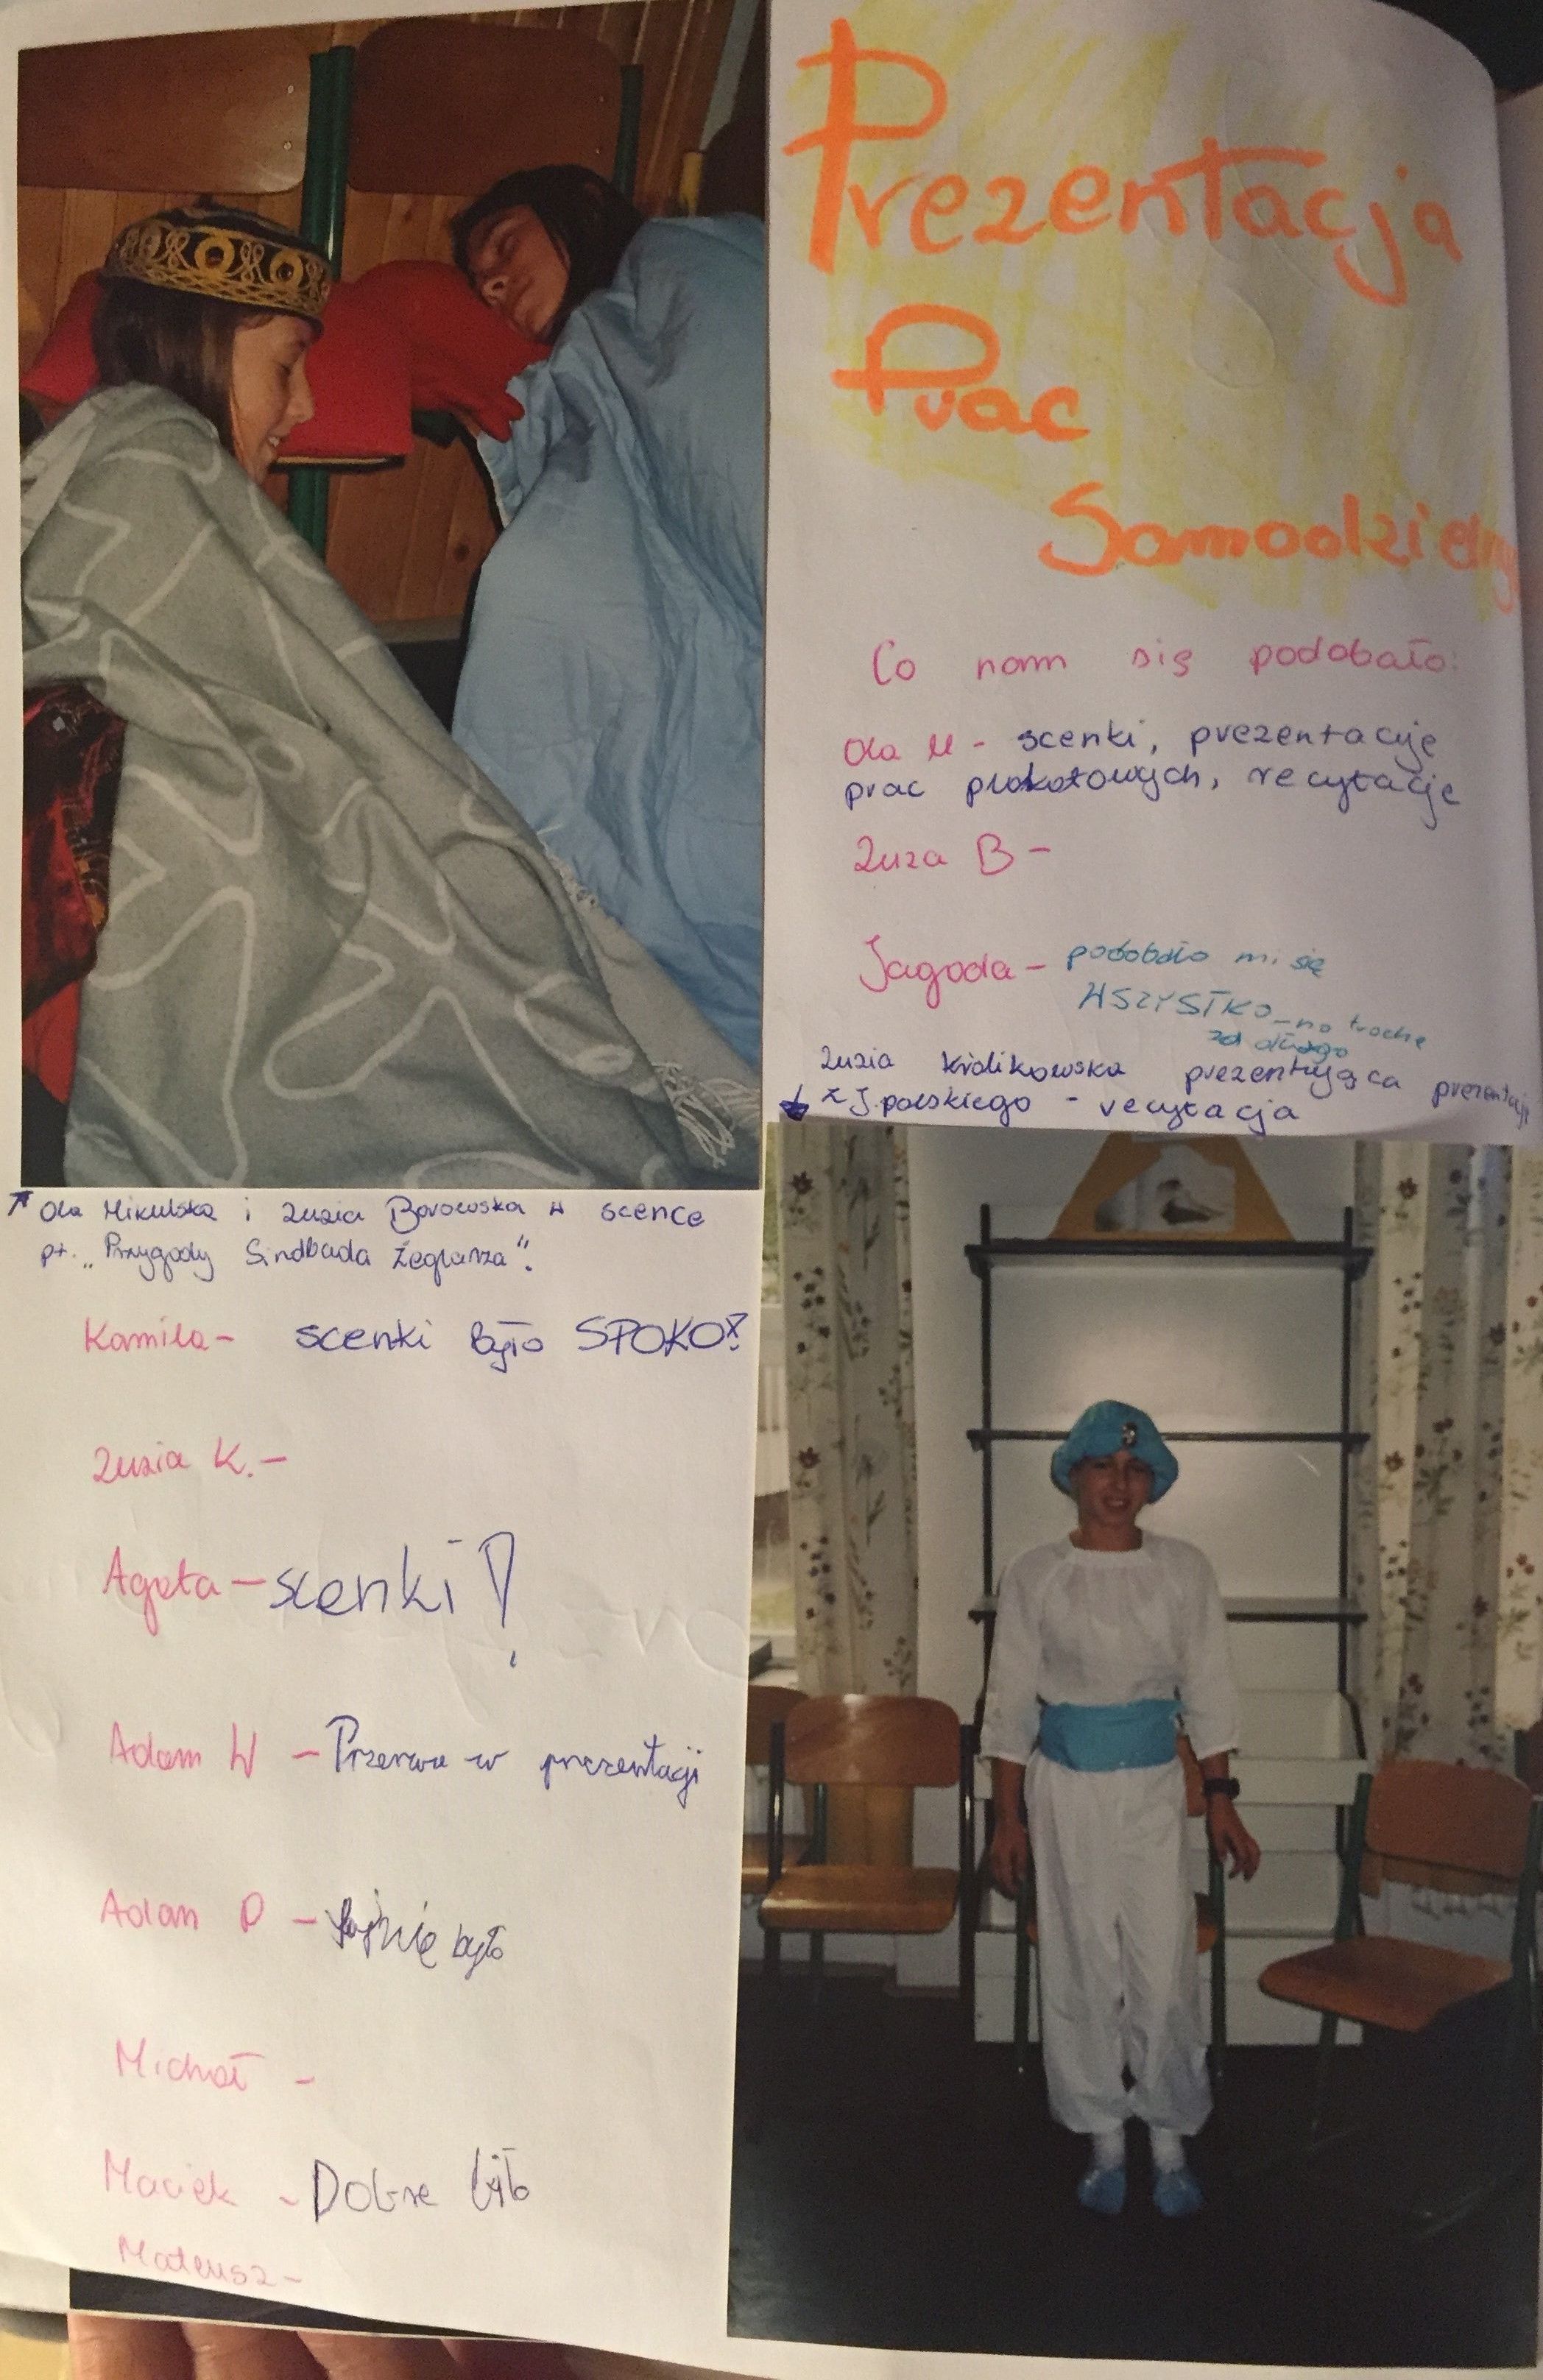 Prezentacja
Prac
Samodzielny
Co nam się podobało:
Ola M - scenki, prezentacje
prac plakatowych, recytacje
Zuza B -
Jagoda - podobało mi się
WSZYSTKO - no trochę
za długo
Zuzia Królikowska prezentująca prezentacje
z J. polskiego - recytacja
Ola Mikulska i Zuzia Borowska w scence
pt. „Przygody Sindbada Żeglarza".
Kamila - scenki było SPOKO!
Zuzia K. -
Agata - scenki!
Adam W - Przerwa w prezentacji
Adam D - fajnie było
Michał -
Maciek - Dobre było
Mateusz -